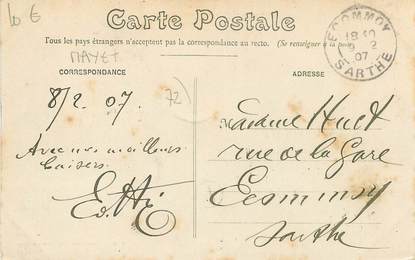 10 €
Carte Postale
Tous les pays étrangers n'acceptent pas la correspondance au recto. (Se renseigner à la poste)
MAYET
CORRESPONDANCE
ADRESSE
ECOMMOY
18 10
9 2
07
SARTHE
8/2 07
72
Avec nos meilleurs
baisers
Madame Huet
rue de la Gare
Ecommoy
Sarthe